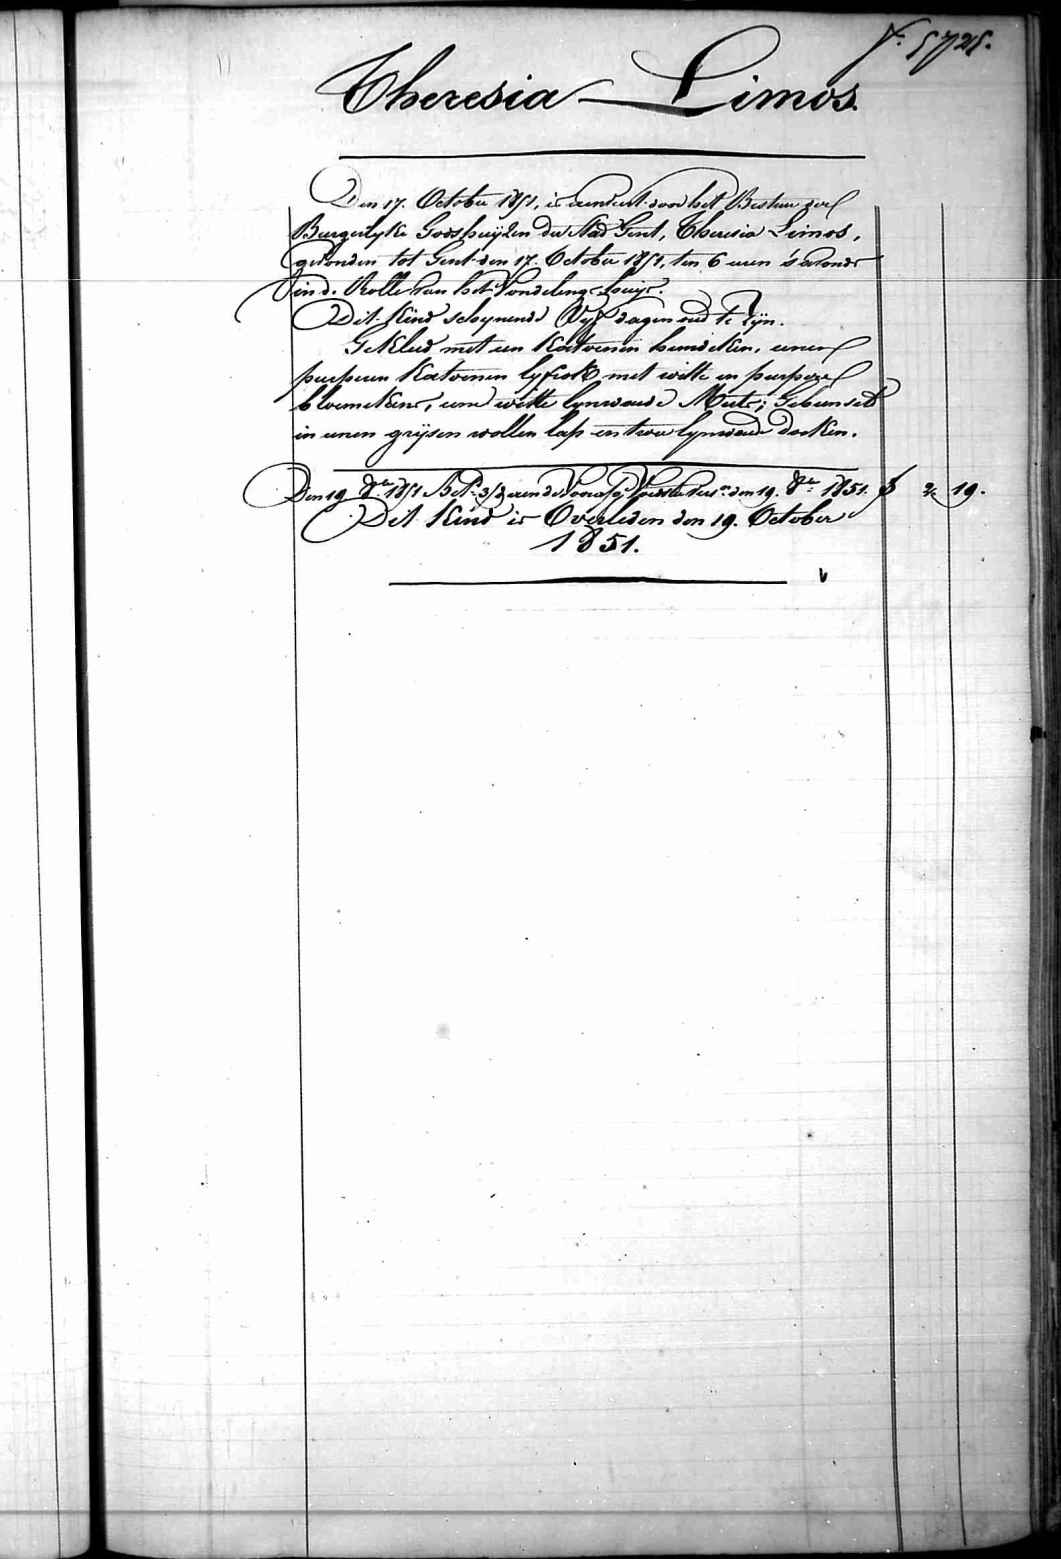 f.° 5725.
Theresia Limos.
Den 17. October 1851, is door het Bestuur der
Burgerlyke Godshuijzen der Stad Gent, Theresia Limos,
gevonden tot Gent den 17. October 1851, ten 6 uren 's avonds
in de Rolle van het Vondelings-huijs.
Dit Kind schynende Vyf dagen oud te Zijn.
Gekleed met een Katoenen hemdeken, eenen
purperen Katoenen lyfrok met witte en purpere
bloemekens, eene witte lynwaede Muts; Gebunseld
in eenen grijsen wollen lap en twee lynwaede doeken.
Den 19 8.bre 1851 Bet. 3/ den 19. 8.bre 1851. f 2 19.
Dit Kind is Overleden den 19. October
1851.